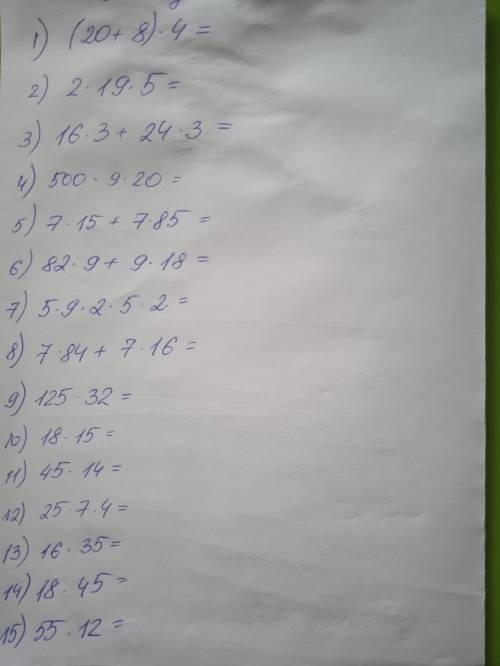 1) (20+ 8)·4=
2) 2·19·5=
3) 16·3+ 24·3=
4) 500·9·20=
5) 7·15+ 7·85=
6) 82·9+ 9·18=
7) 5·9·2·5·2=
8) 7·84+ 7·16=
9) 125·32=
10) 18·15=
11) 45·14=
12) 25·7·4=
13) 16·35=
14) 18·45=
15) 55·12=